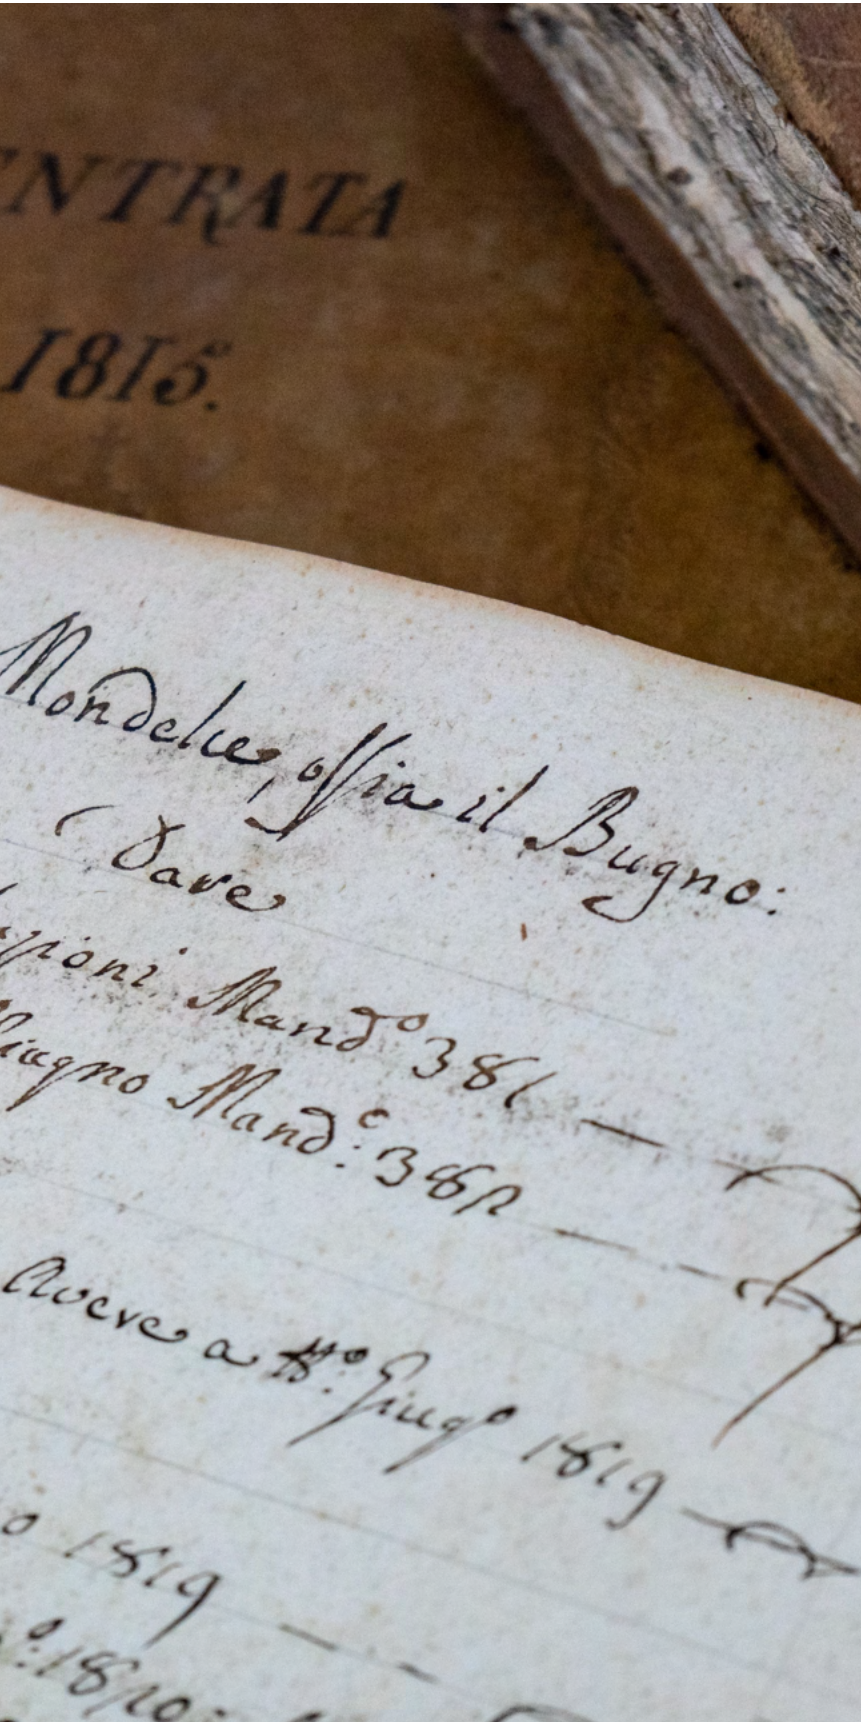 ENTRATA
1815.
Mondelce, ossia il Bugno:
Dare
Mandº 381 —
Giugno Mand:º 382 — —
Avere a tttº: Giugº 1819 —
o 1819 — —
º: 1820: